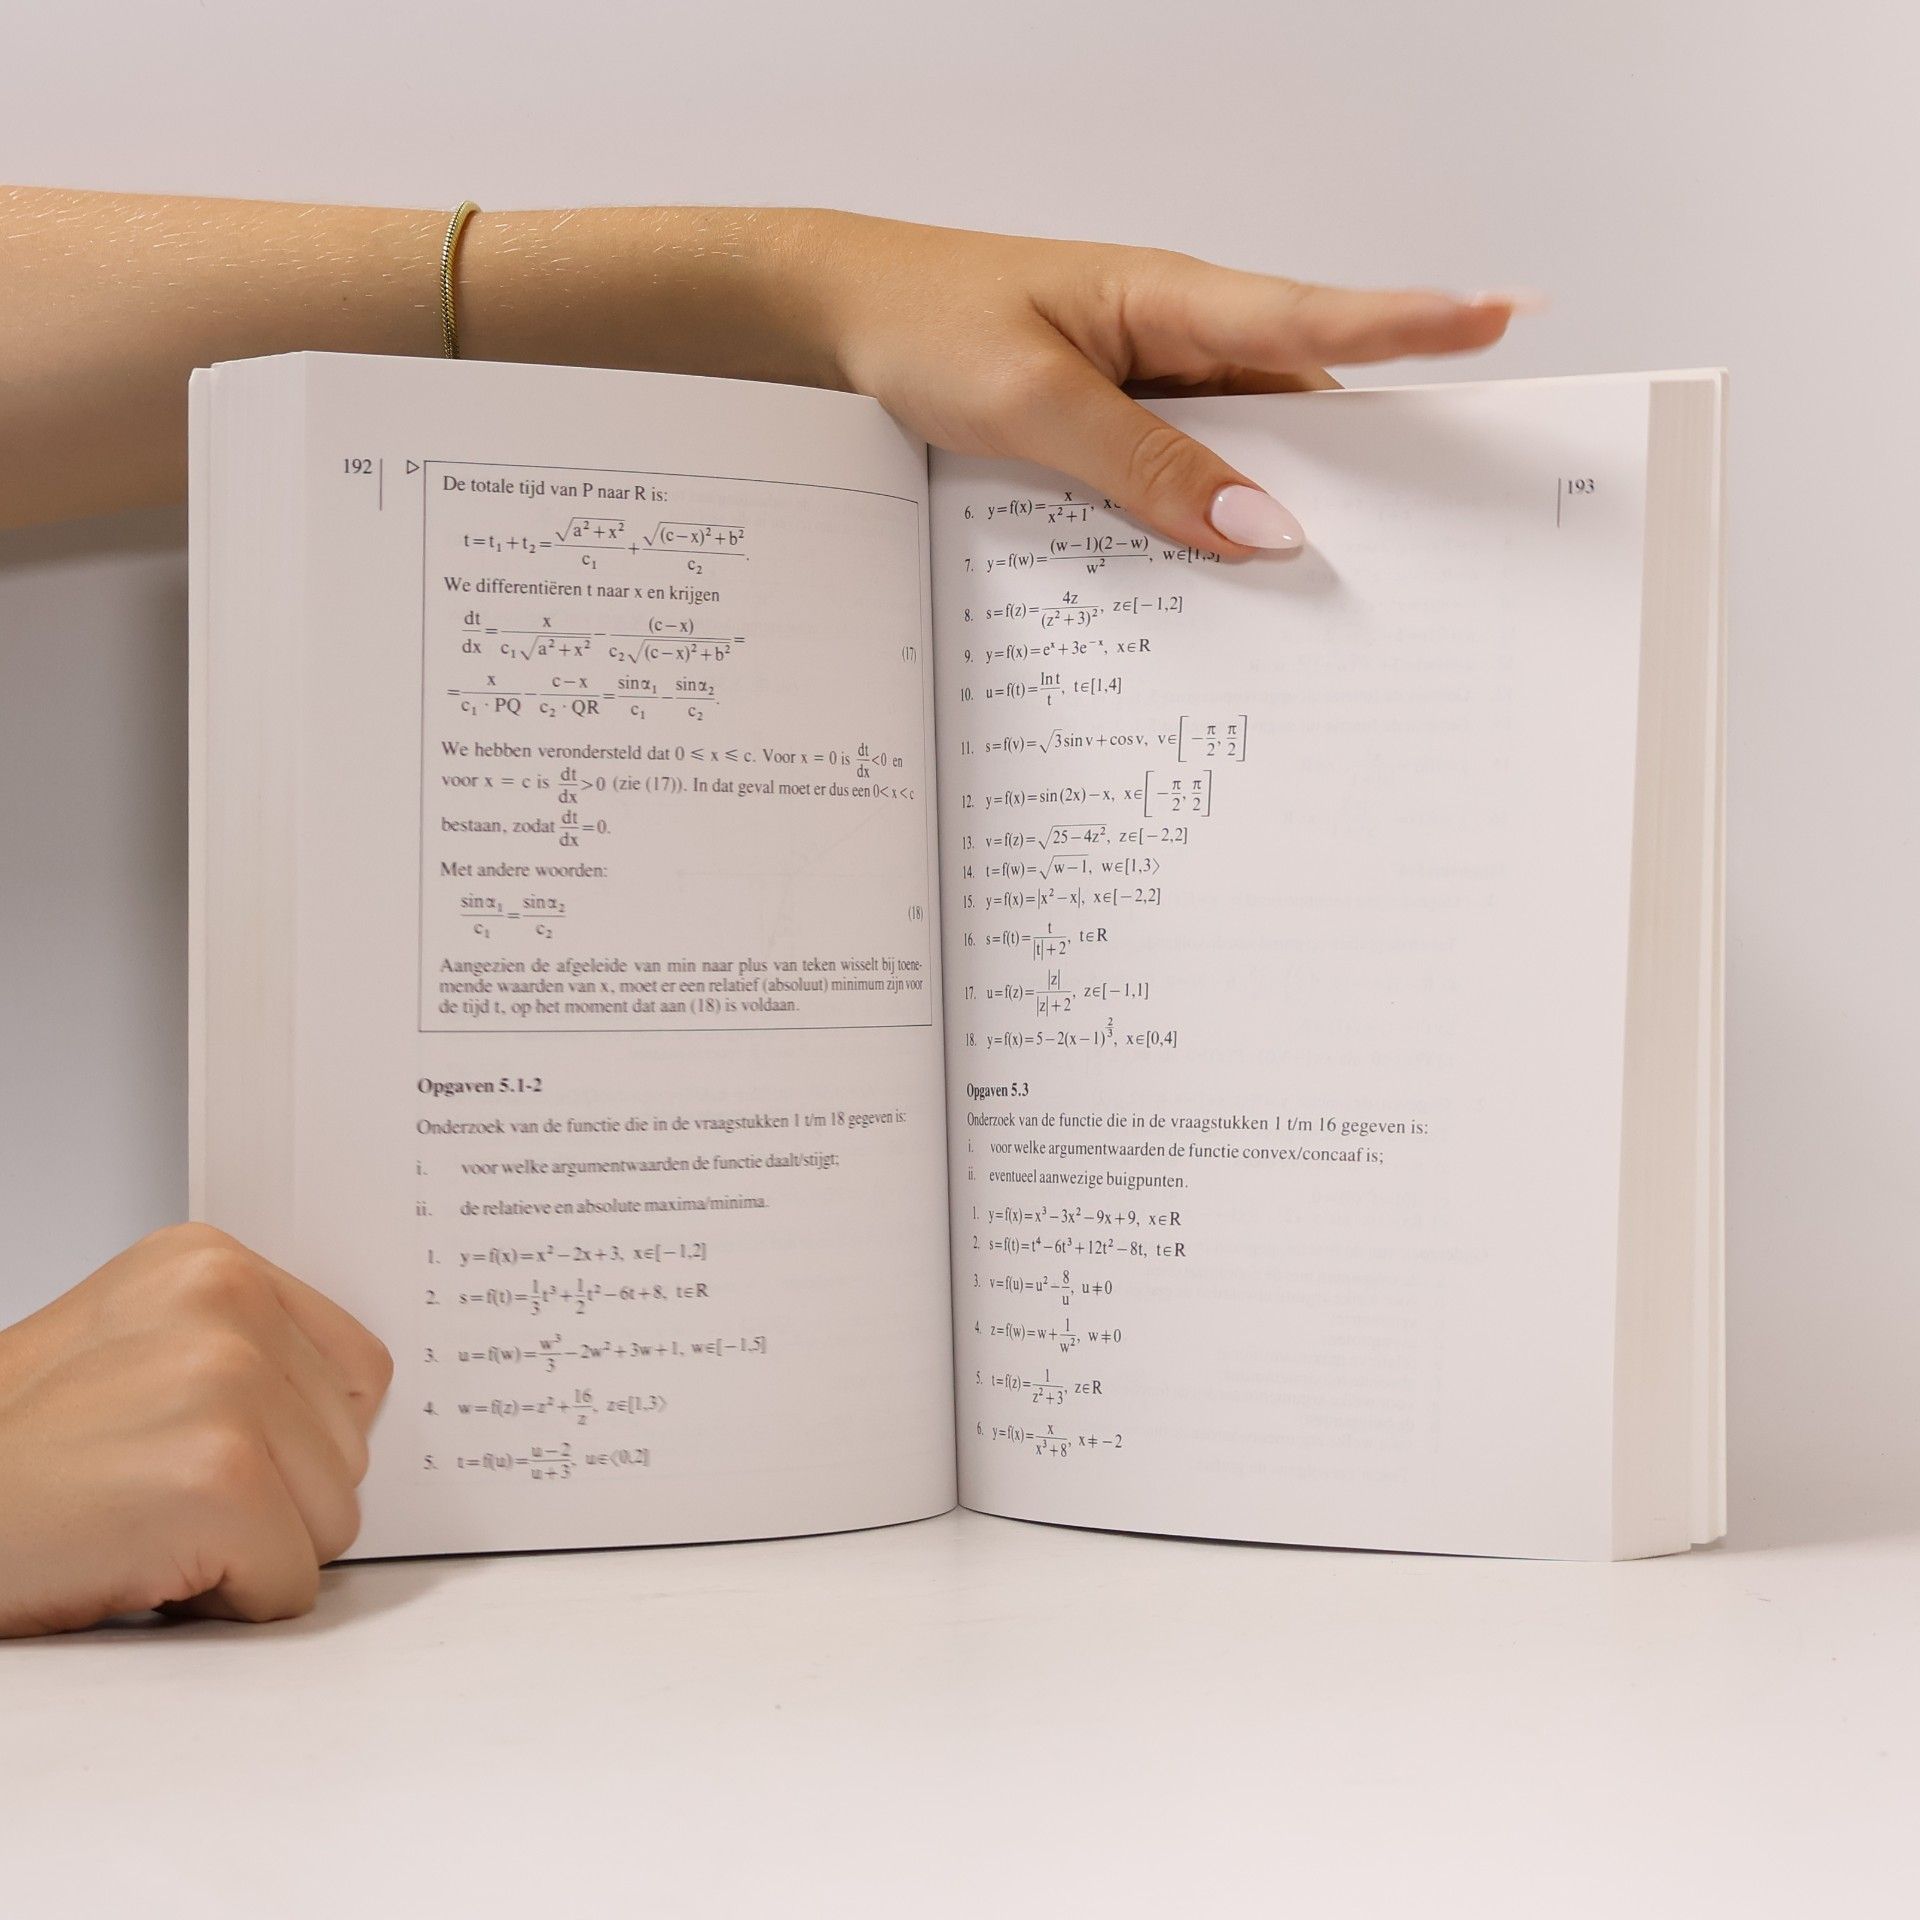 192
De totale tijd van P naar R is:
t=t₁+t₂=√(a²+x²)/c₁+√((c−x)²+b²)/c₂.
We differentiëren t naar x en krijgen
dt/dx=x/(c₁√(a²+x²))−(c−x)/(c₂√((c−x)²+b²))=
(17)
=x/(c₁·PQ)−(c−x)/(c₂·QR)=sinα₁/c₁−sinα₂/c₂.
We hebben verondersteld dat 0 ⩽ x ⩽ c. Voor x = 0 is dt/dx<0 en
voor x = c is dt/dx>0 (zie (17)). In dat geval moet er dus een 0<x<c
bestaan, zodat dt/dx=0.
Met andere woorden:
sinα₁/c₁=sinα₂/c₂
(18)
Aangezien de afgeleide van min naar plus van teken wisselt bij toene-
mende waarden van x, moet er een relatief (absoluut) minimum zijn voor
de tijd t, op het moment dat aan (18) is voldaan.
Opgaven 5.1-2
Onderzoek van de functie die in de vraagstukken 1 t/m 18 gegeven is:
i. voor welke argumentwaarden de functie daalt/stijgt;
ii. de relatieve en absolute maxima/minima.
1. y=f(x)=x²−2x+3, x∈[−1,2]
2. s=f(t)=1/3t³+1/2t²−6t+8, t∈R
3. u=f(w)=w³/3−2w²+3w+1, w∈[−1,5]
4. w=f(z)=z²+16/z, z∈[1,3⟩
5. t=f(u)=(u−2)/(u+3), u∈⟨0,2]
193
6. y=f(x)=x/(x²+1),
7. y=f(w)=(w−1)(2−w)/w², w∈[1,3]
8. s=f(z)=4z/(z²+3)², z∈[−1,2]
9. y=f(x)=eˣ+3e⁻ˣ, x∈R
10. u=f(t)=ln t/t, t∈[1,4]
11. s=f(v)=√3sinv+cosv, v∈[−π/2,π/2]
12. y=f(x)=sin(2x)−x, x∈[−π/2,π/2]
13. v=f(z)=√(25−4z²), z∈[−2,2]
14. t=f(w)=√(w−1), w∈[1,3⟩
15. y=f(x)=|x²−x|, x∈[−2,2]
16. s=f(t)=t/(|t|+2), t∈R
17. u=f(z)=|z|/(|z|+2), z∈[−1,1]
18. y=f(x)=5−2(x−1)^(2/3), x∈[0,4]
Opgaven 5.3
Onderzoek van de functie die in de vraagstukken 1 t/m 16 gegeven is:
i. voor welke argumentwaarden de functie convex/concaaf is;
ii. eventueel aanwezige buigpunten.
1. y=f(x)=x³−3x²−9x+9, x∈R
2. s=f(t)=t⁴−6t³+12t²−8t, t∈R
3. v=f(u)=u²−8/u, u≠0
4. z=f(w)=w+1/w², w≠0
5. t=f(z)=1/(z²+3), z∈R
6. y=f(x)=x/(x³+8), x≠−2